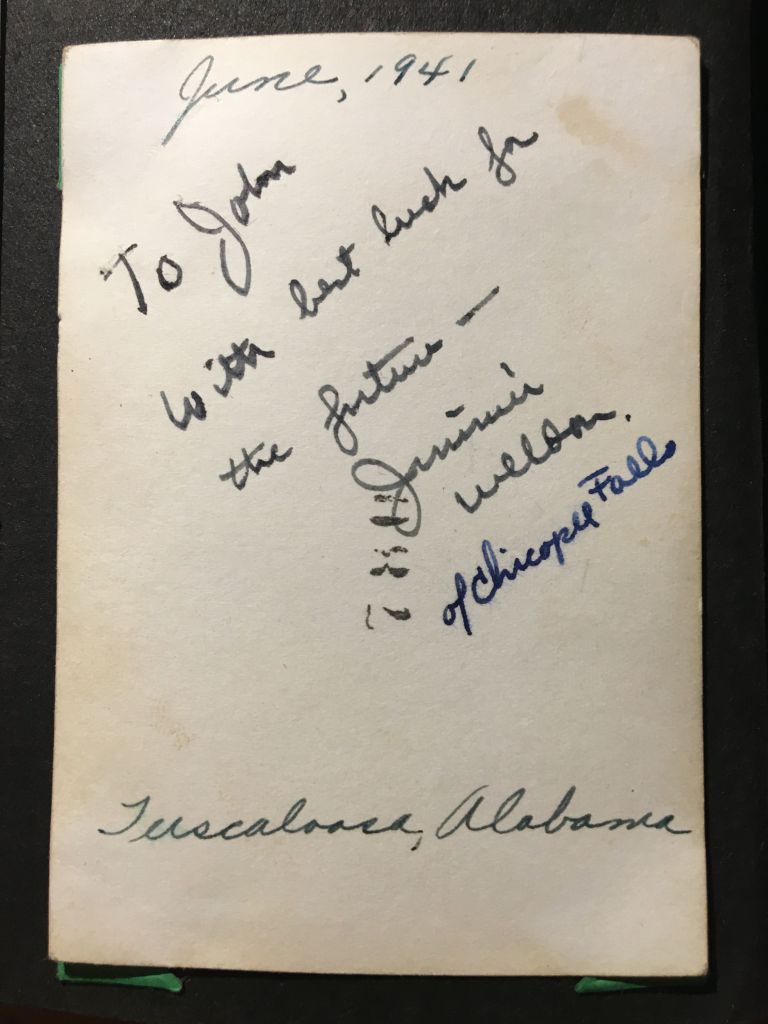 June, 1941
To John
With best luck for
the future —
Jimmie
Weldon.
of Chicopee Falls
Tuscaloosa, Alabama